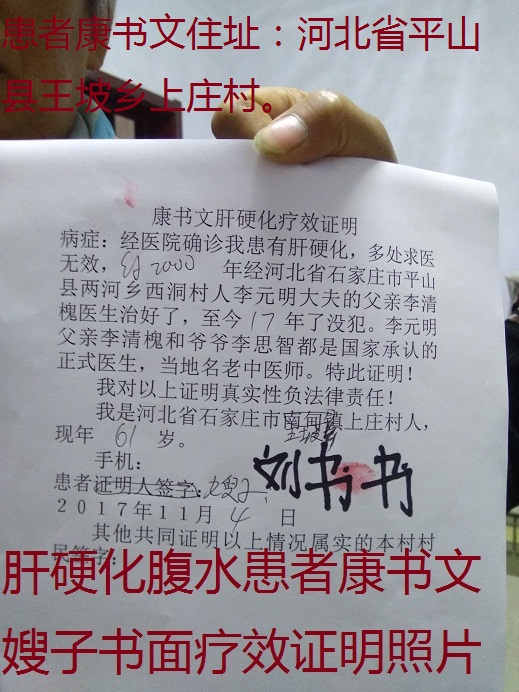 患者康书文住址：河北省平山
县王坡乡上庄村。
康书文肝硬化疗效证明
病症：经医院确诊我患有肝硬化，多处求医
无效，自2000 年经河北省石家庄市平山
县两河乡西洞村人李元明大夫的父亲李清
槐医生治好了，至今17年了没犯。李元明
父亲李清槐和爷爷李思智都是国家承认的
正式医生，当地名老中医师。特此证明！
我对以上证明真实性负法律责任！
我是河北省石家庄市南甸镇上庄村人，
王坡乡
现年 61 岁。
手机：
患者证明人签字：嫂子 刘书书
2017年11月 4 日
其他共同证明以上情况属实的本村村
民签字：
肝硬化腹水患者康书文
嫂子书面疗效证明照片